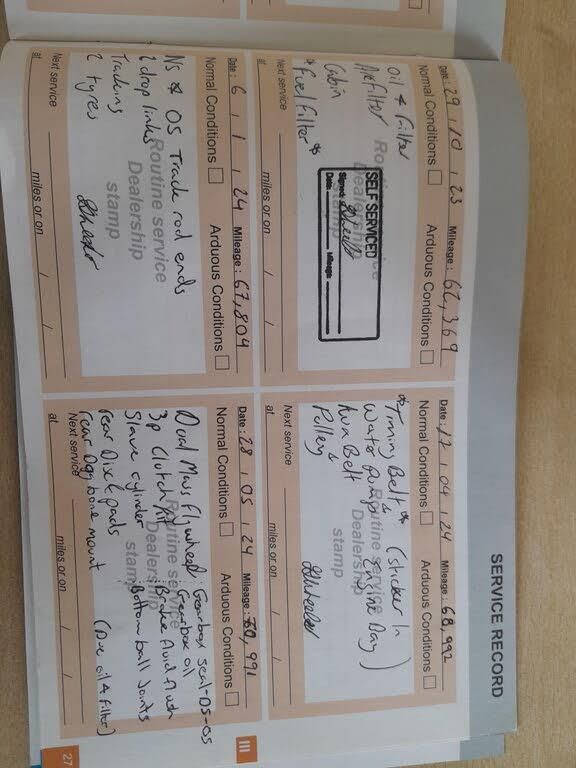 SERVICE RECORD
Date: 29 / 10 / 23 Mileage: 62,369
Normal Conditions Arduous Conditions
Oil & Filter
Air Filter
Cabin
* Fuel Filter *
Routine service
Dealership
stamp
SELF SERVICED
Signed:
Date: Mileage
Next service
at miles or on / /
Date: 17 / 04 / 24 Mileage: 68,992
Normal Conditions Arduous Conditions
* Timing Belt * (Sticker In
Water Pump & Engine Bay)
Aux Belt
& Pulley
Routine service
Dealership
stamp
Next service
at miles or on / /
Date: 6 / 1 / 24 Mileage: 67,804
Normal Conditions Arduous Conditions
NS & OS Track rod ends
2 drop links
Tracking
2 tyres
Routine service
Dealership
stamp
Next service
at miles or on / /
Date: 28 / 05 / 24 Mileage: 70,991
Normal Conditions Arduous Conditions
Dual Mass Flywheel Gearbox Seal-DS-OS
3p Clutch Kit Gearbox oil
Slave cylinder Brake Fluid flush
rear Disc & pads Bottom ball joints
rear Dogbone mount (Due oil & filter)
Routine service
Dealership
stamp
Next service
at miles or on / /
III
27